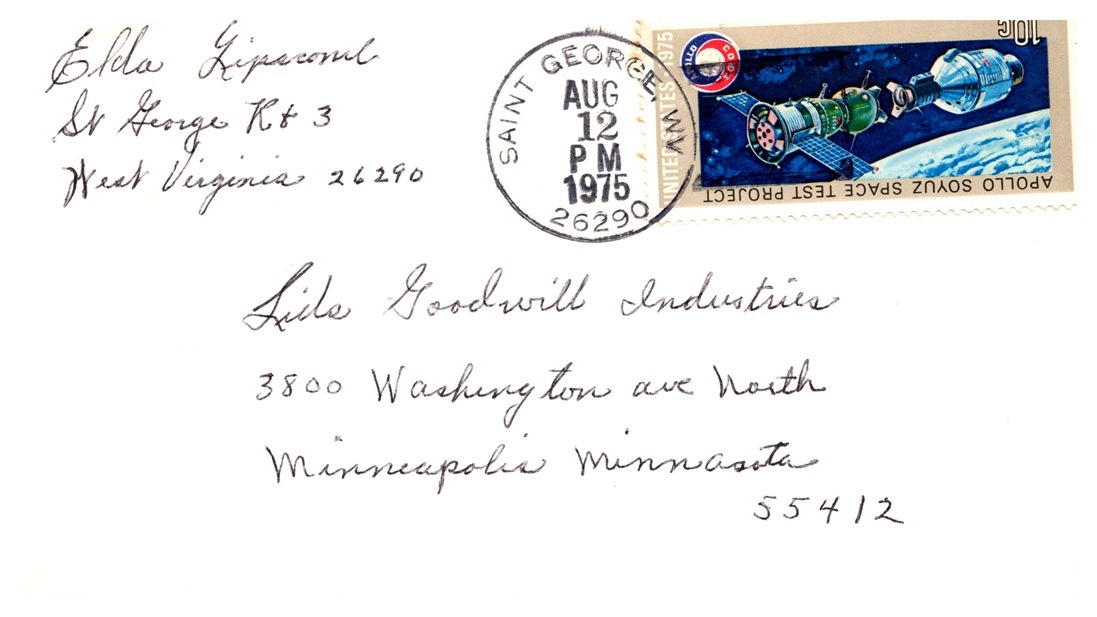 Elda Lipscomb
St George Rt 3
West Virginia 26290
SAINT GEORGE, WV
AUG
12
PM
1975
26290
10c
UNITED STATES 1975
APOLLO SOYUZ SPACE TEST PROJECT
Lids Goodwill Industries
3800 Washington ave North
Minneapolis Minnasota
55412